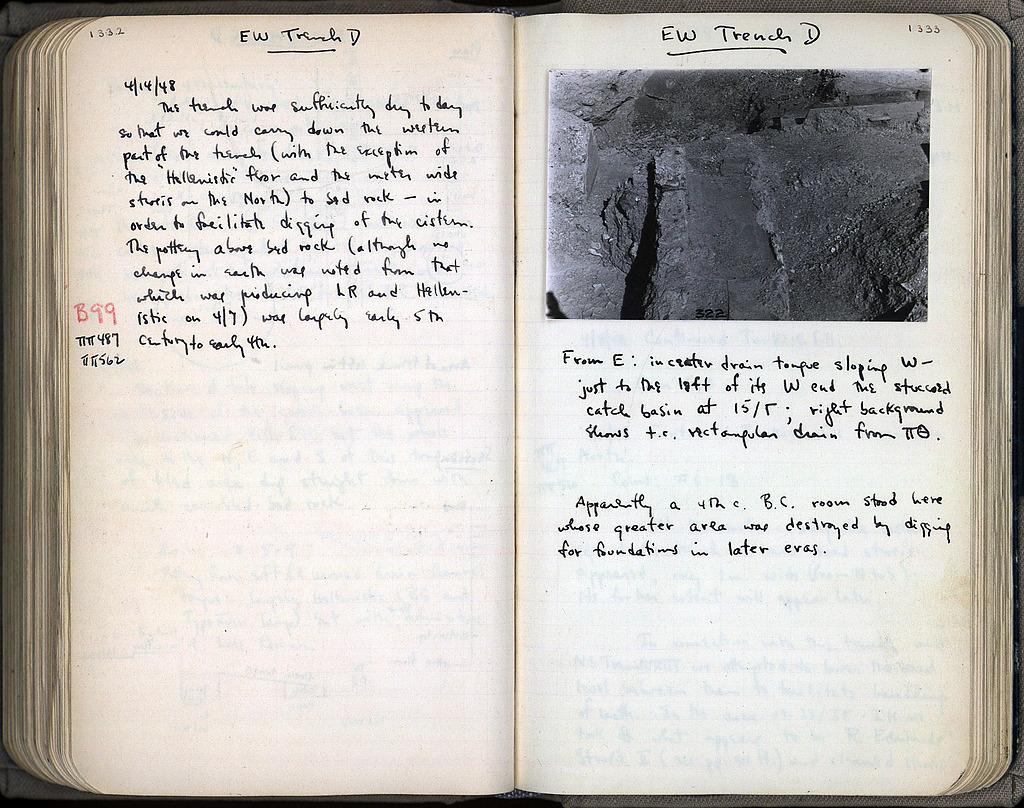 1332
EW Trench D
4/14/48
The trench was sufficiently dug today
so that we could carry down the western
part of the trench (with the exception of
the "Hellenistic" floor and the meter wide
strosis on the North) to bed rock — in
order to facilitate digging of the cistern.
The pottery above bed rock (although no
change in earth was noted from that
which was producing LR and Hellen-
istic on 4/7) was largely early 5th
century to early 4th.
B99
ΠΠ487
ΠΠ562
1333
EW Trench D
322
From E: in center drain tongue sloping W—
just to the left of its W end the stuccoed
catch basin at 15/Γ; right background
shows t.c. rectangular drain from ΠΘ.
Apparently a 4th c. B.C. room stood here
whose greater area was destroyed by digging
for foundations in later eras.